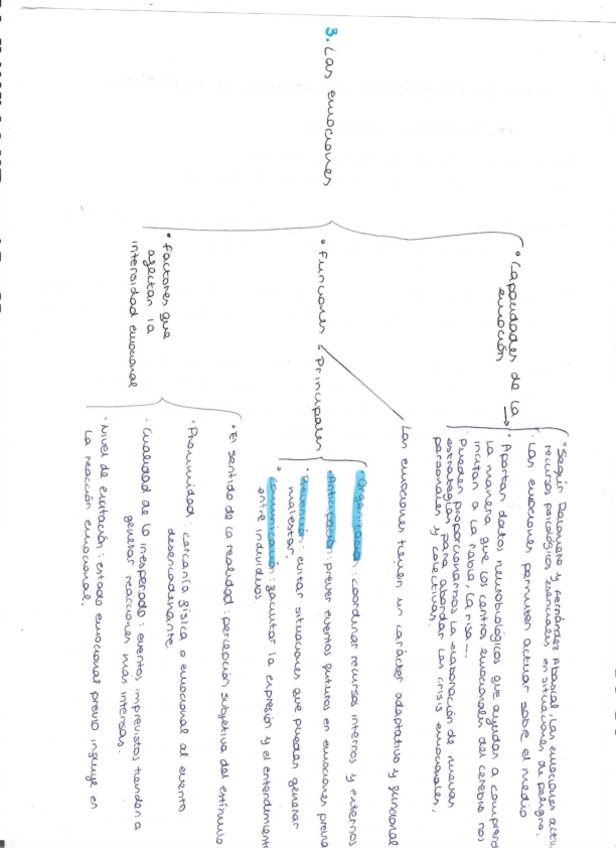 3. Las emociones
• Capacidades de la
emoción
• Según Palomero y Fernández Abascal, las emociones acti
recursos psicológicos esenciales en situaciones de peligro.
• Las emociones permiten actuar sobre el medio
• Aportan datos neurobiológicos que ayudan a comprend
la manera que los centros emocionales del cerebro nos
incitan a la rabia, la risa...
• Pueden proporcionarnos la elaboración de nuevas
estrategias para abordar las crisis emocionales,
personales y colectivas.
• Funciones
Las emociones tienen un carácter adaptativo y funcional
Principales
• Organización: coordinar recursos internos y externos
• Anticipación: prever eventos futuros en emociones previa
• Prevención: evitar situaciones que puedan generar
malestar.
• Comunicación: facilitar la expresión y el entendimiento
entre individuos.
• Factores que
afectan la
intensidad emocional
• El sentido de la realidad: percepción subjetiva del estímulo
• Proximidad: cercanía física o emocional al evento
desencadenante
• Cualidad de lo inesperado: eventos imprevistos tienden a
generar reacciones más intensas.
• Nivel de excitación: estado emocional previo influye en
la reacción emocional.